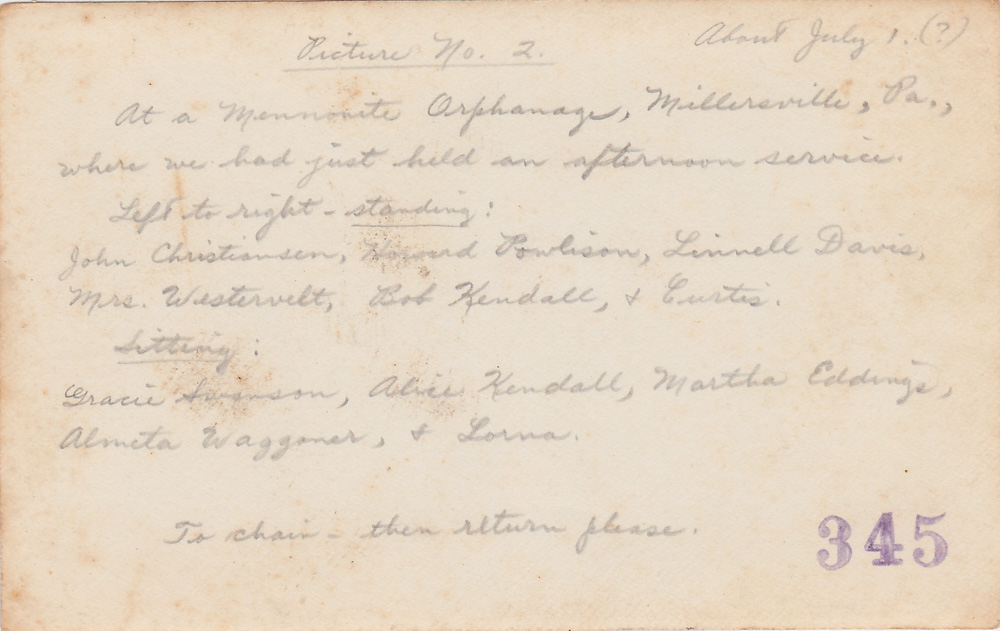 About July 1. (?)
Picture No. 2.
At a Mennonite Orphanage, Millersville, Pa.,
where we had just held an afternoon service.
Left to right - standing:
John Christiansen, Howard Powlison, Linnell Davis,
Mrs. Westervelt, Bob Kendall, & Curtis.
Sitting:
Gracie Swanson, Alice Kendall, Martha Eddings,
Almeta Waggoner, & Lorna.
To chain - then return please.
345